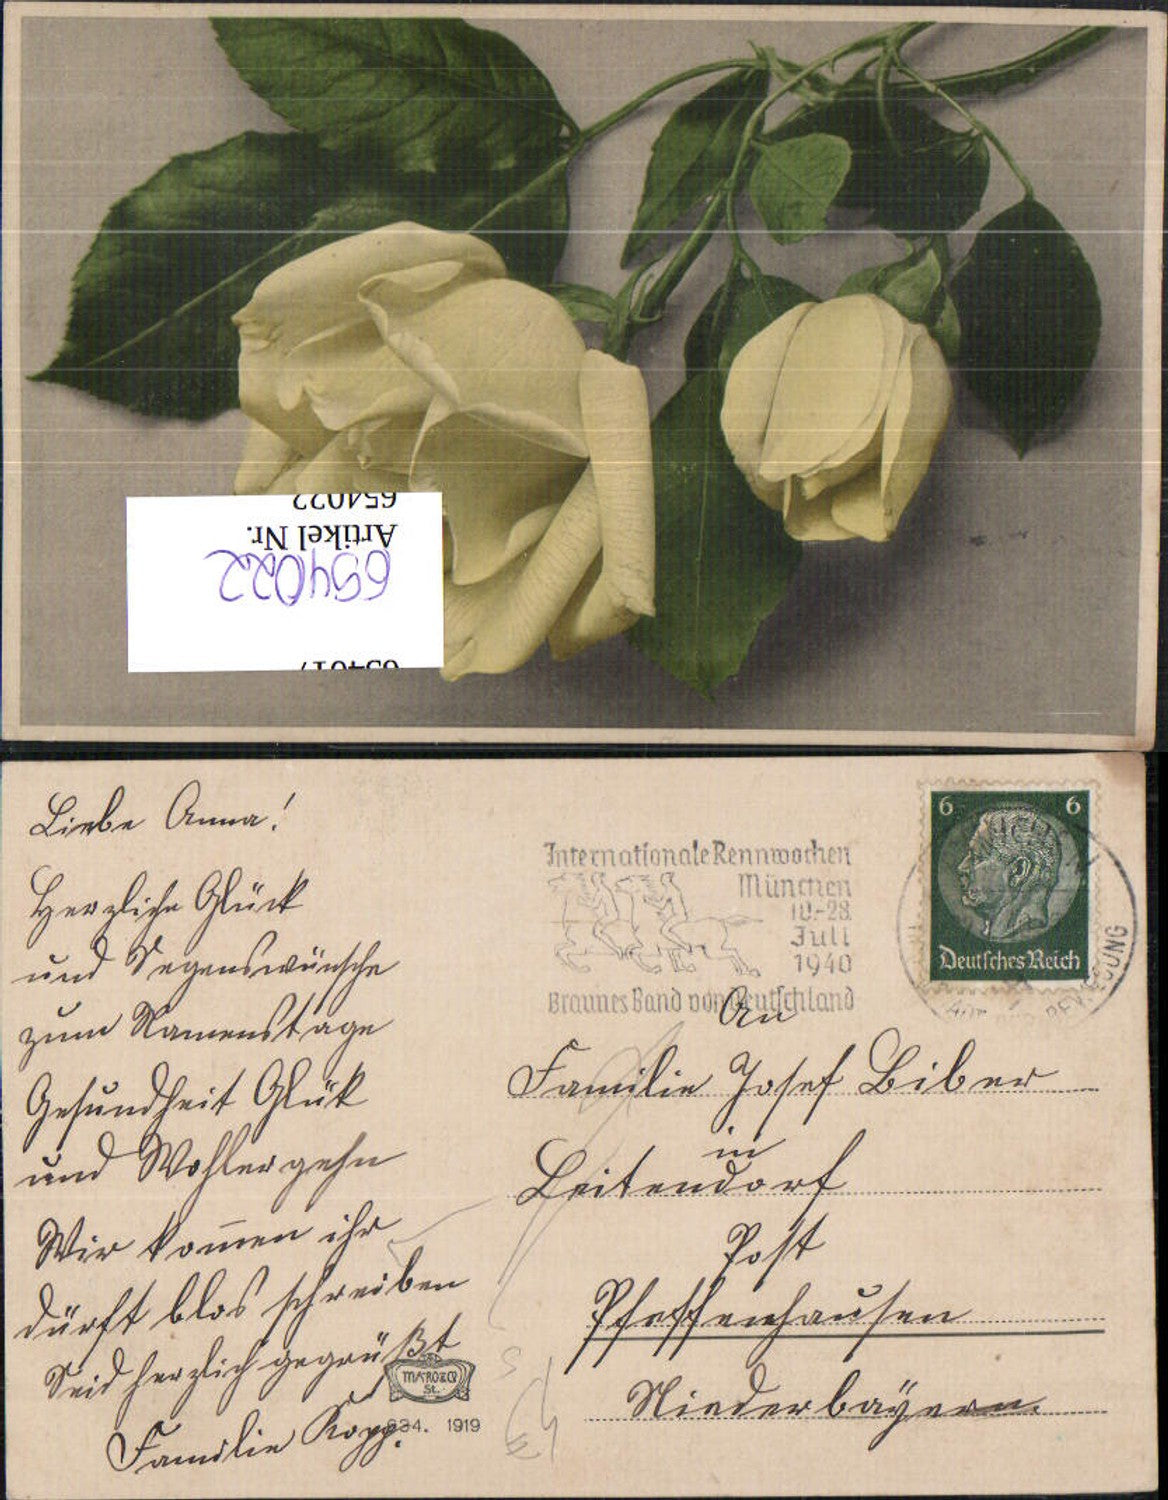 654022
Artikel Nr.
654022
654017
Liebe Anna!
Herzliche Glück
und Segenswünsche
zum Namenstage
Gesundheit Glük
und Wohlergehn
Wir kom̄en ihr
dürft blos schreiben
Seid herzlich gegrüßt
Familie Kopp.
MAROCO
St.
634. 1919
Internationale Rennwochen
München
10-28
Juli
1940
Braunes Band von Deutschland
6 6
Deutsches Reich
An
Familie Josef Biber
in
Leitendorf
Post
Pfeffenhausen
Niederbayern.